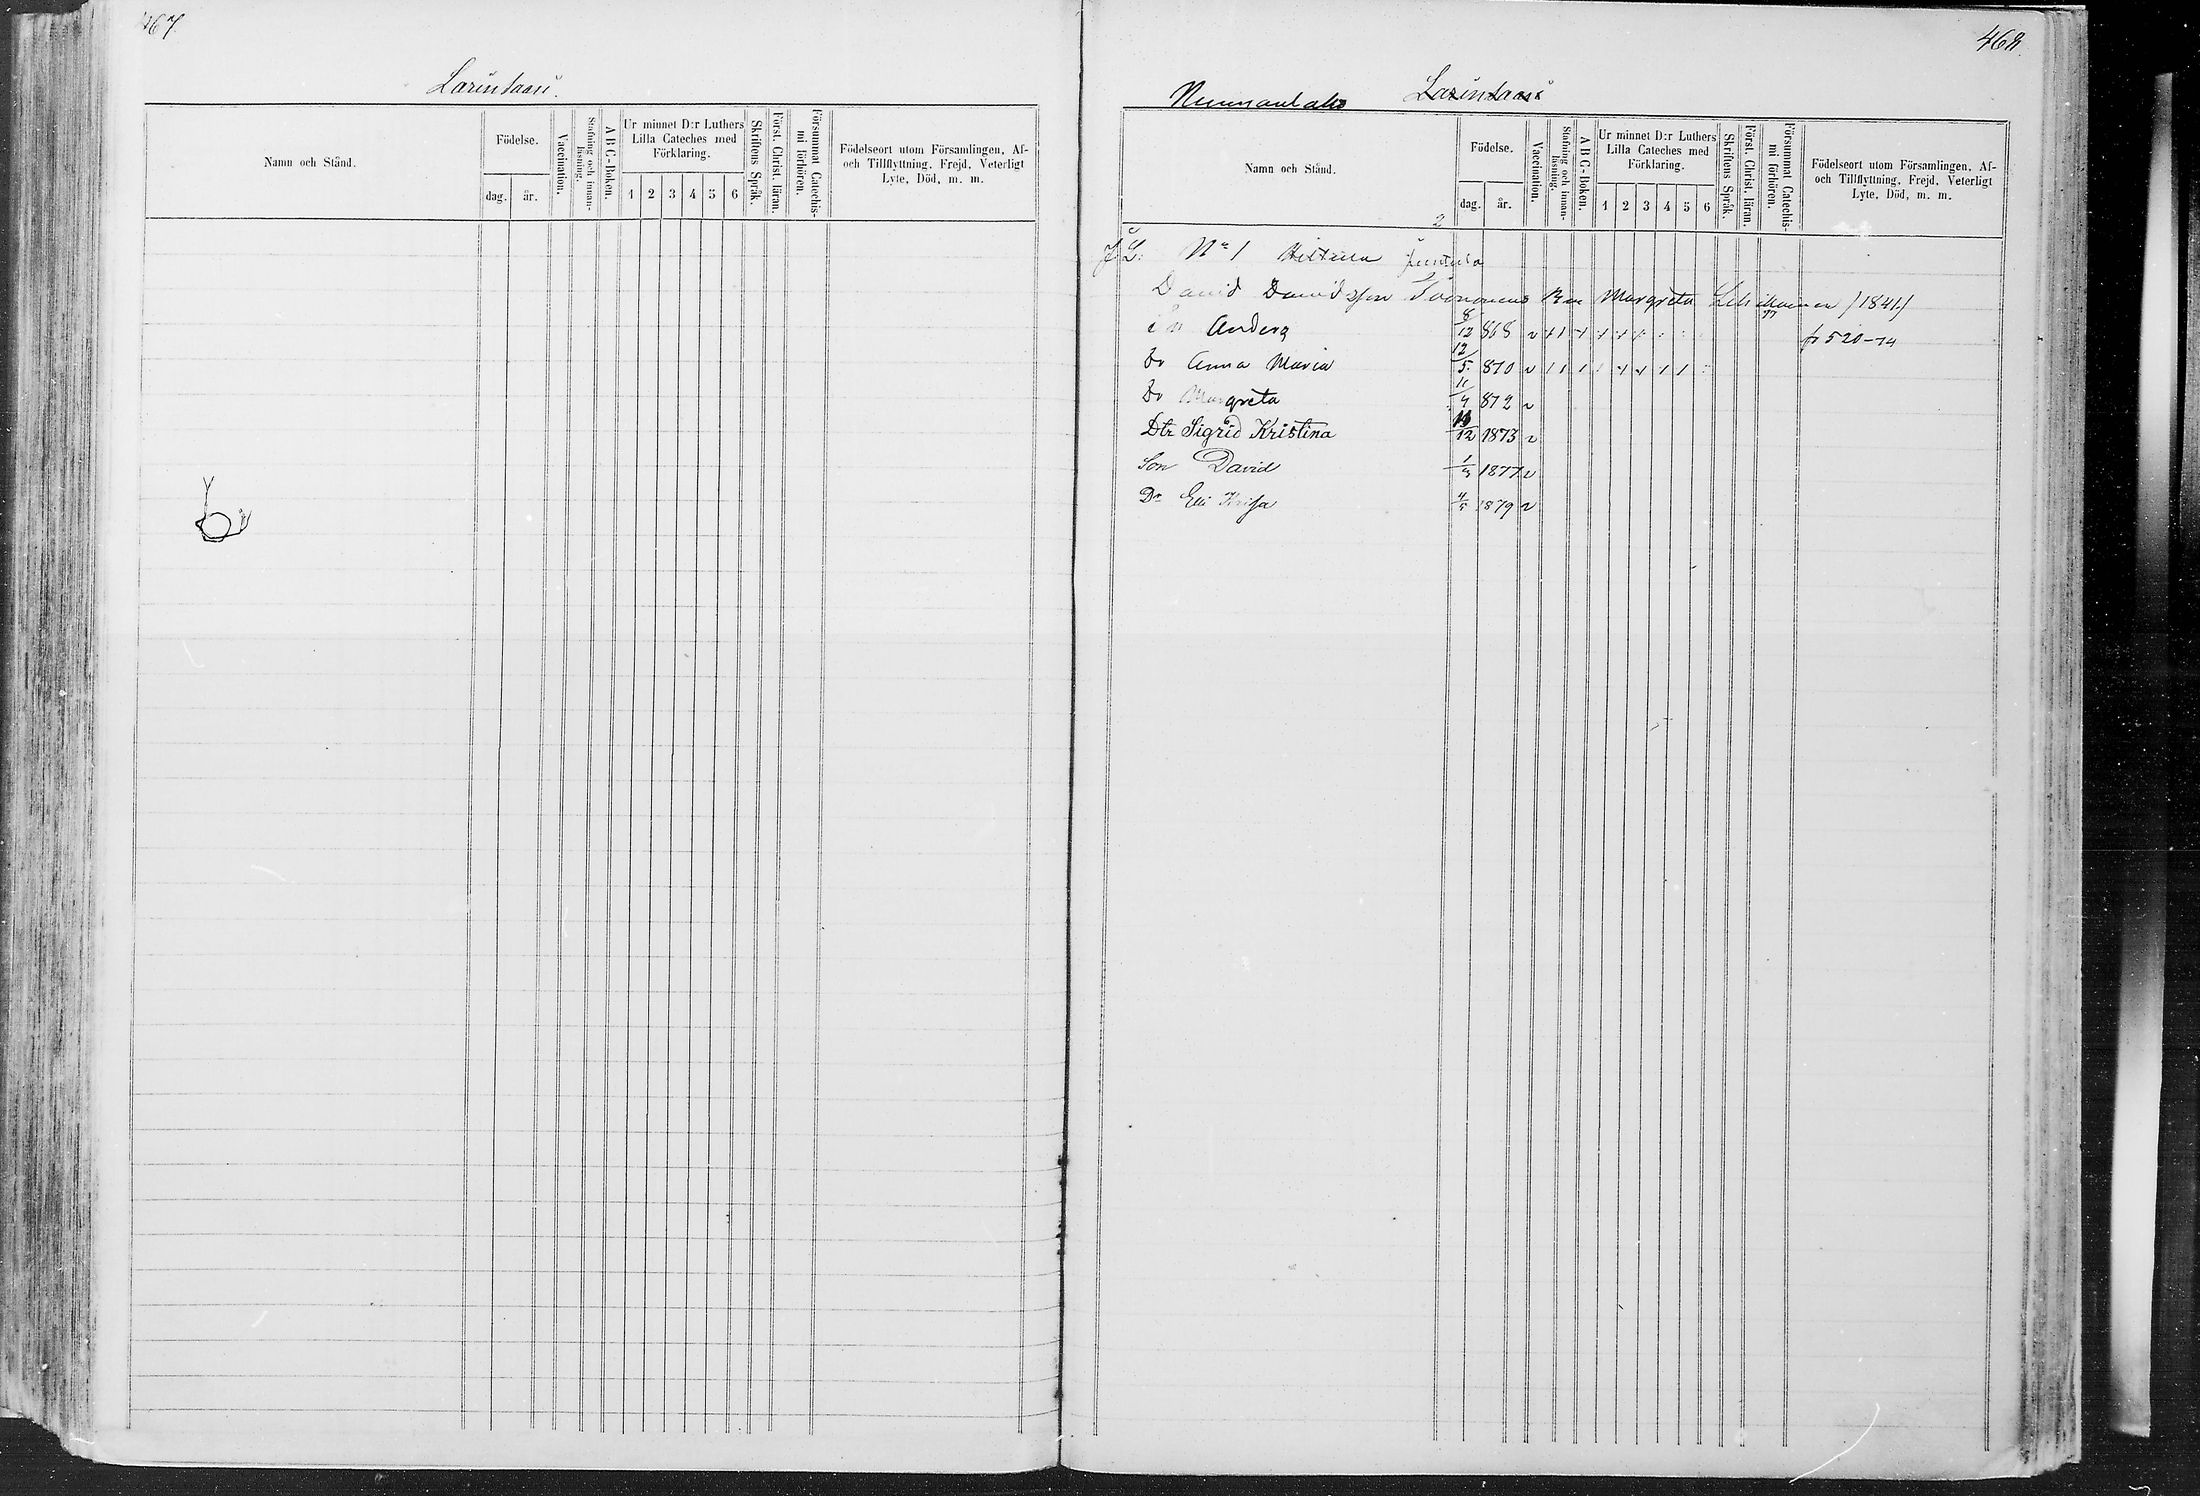 467.
Larinsaari.
Namn och Stånd.
Födelse.
dag. år.
Vaccination.
Stafning och innan-läsning.
A B C-Boken.
Ur minnet D:r Luthers
Lilla Cateches med
Förklaring.
1 2 3 4 5 6
Skriftens Språk.
Först. Christ. läran.
Försummat Catechis-mi förhören.
Födelseort utom Församlingen, Af-
och Tillflyttning, Frejd, Veterligt
Lyte, Död, m. m.
468
Larinsaari
Namn och Stånd.
Födelse.
dag. år.
Vaccination.
Stafning och innan-läsning.
A B C-Boken.
Ur minnet D:r Luthers
Lilla Cateches med
Förklaring.
1 2 3 4 5 6
Skriftens Språk.
Först. Christ. läran.
Försummat Catechis-mi förhören.
Födelseort utom Församlingen, Af-
och Tillflyttning, Frejd, Veterligt
Lyte, Död, m. m.
2
No 1
David Davidsson Margreta /1841/
Anders 8/12 868 fr 520-74
Dr Anna Maria 12/5 870
Dr Margreta 11/4 872
Dtr Sigrid Kristina 12 1873
Son David 1877
Dr Elli 4/5 1879